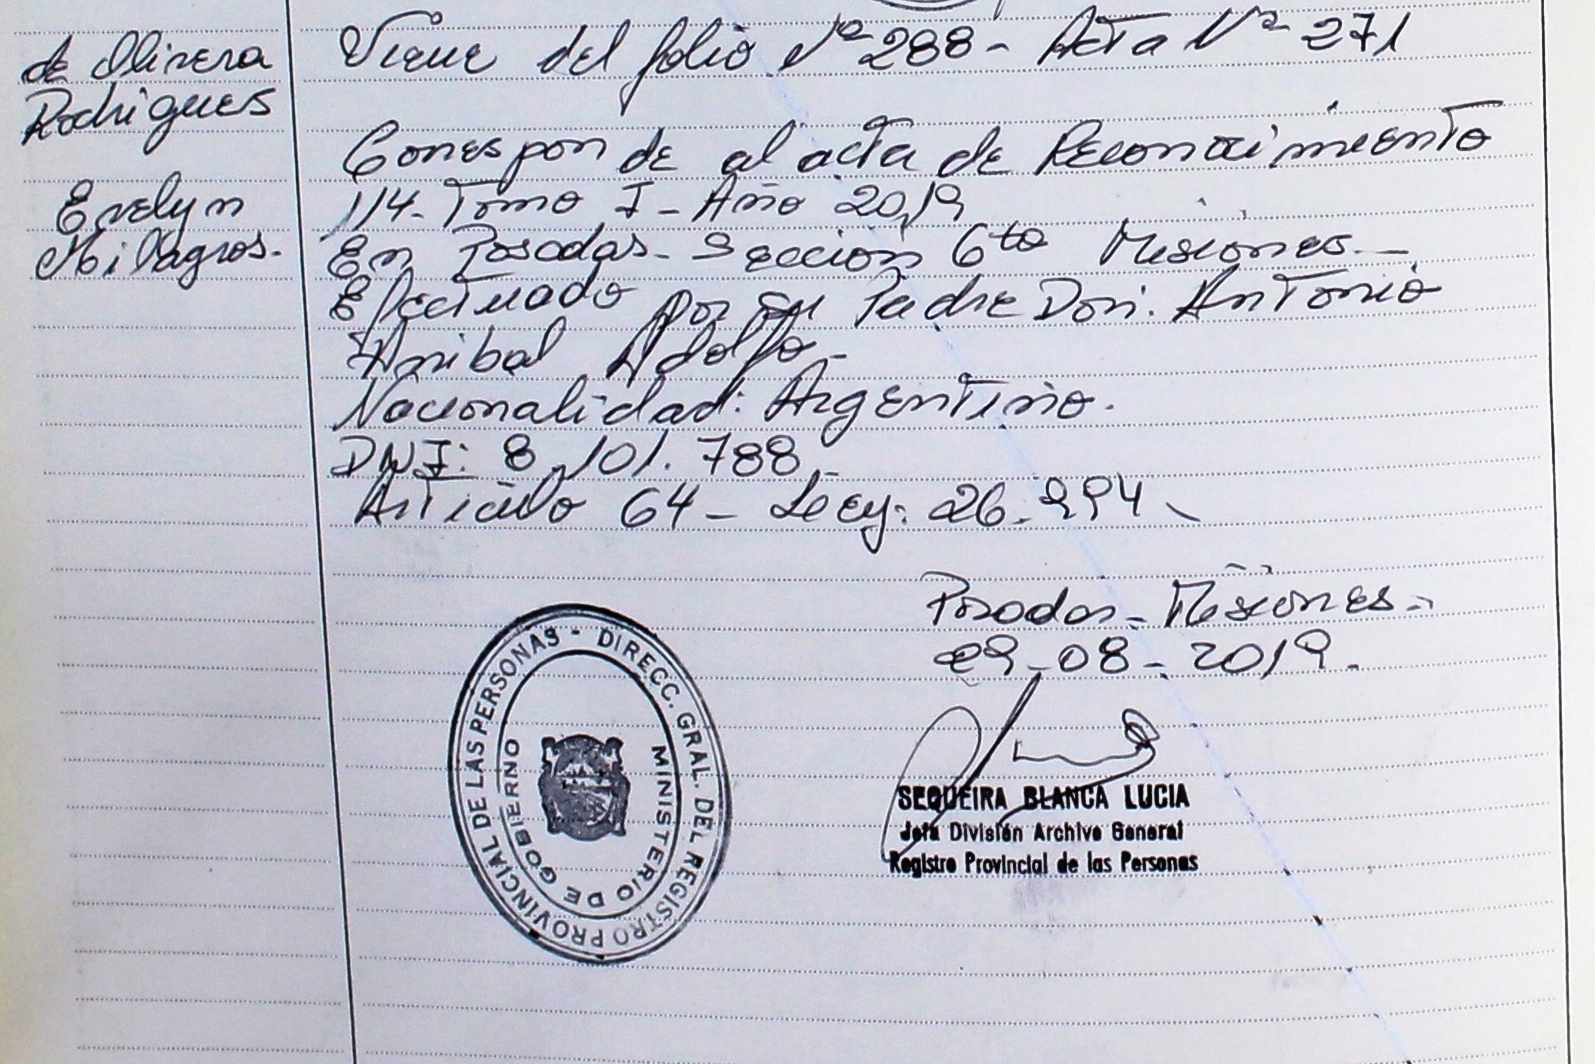 de Olivera
Rodrigues
Evelyn
Milagros.
Viene del folio Nº 288 - Acta Nº 271
Corresponde al acta de Reconocimiento
114. Tomo I - Año 2019
En Posadas - Sección 6ta Misiones. -
Efectuado por su Padre Don: Antonio
Anibal Adolfo -
Nacionalidad: Argentino.
DNI: 8.101.788 -
Artículo 64 - Ley: 26.994 -
Posadas - Misiones -
29-08-2019.
DIRECC. GRAL. DEL REGISTRO PROVINCIAL DE LAS PERSONAS -
MINISTERIO DE GOBIERNO
SEQUEIRA BLANCA LUCIA
Jefa División Archivo General
Registro Provincial de las Personas